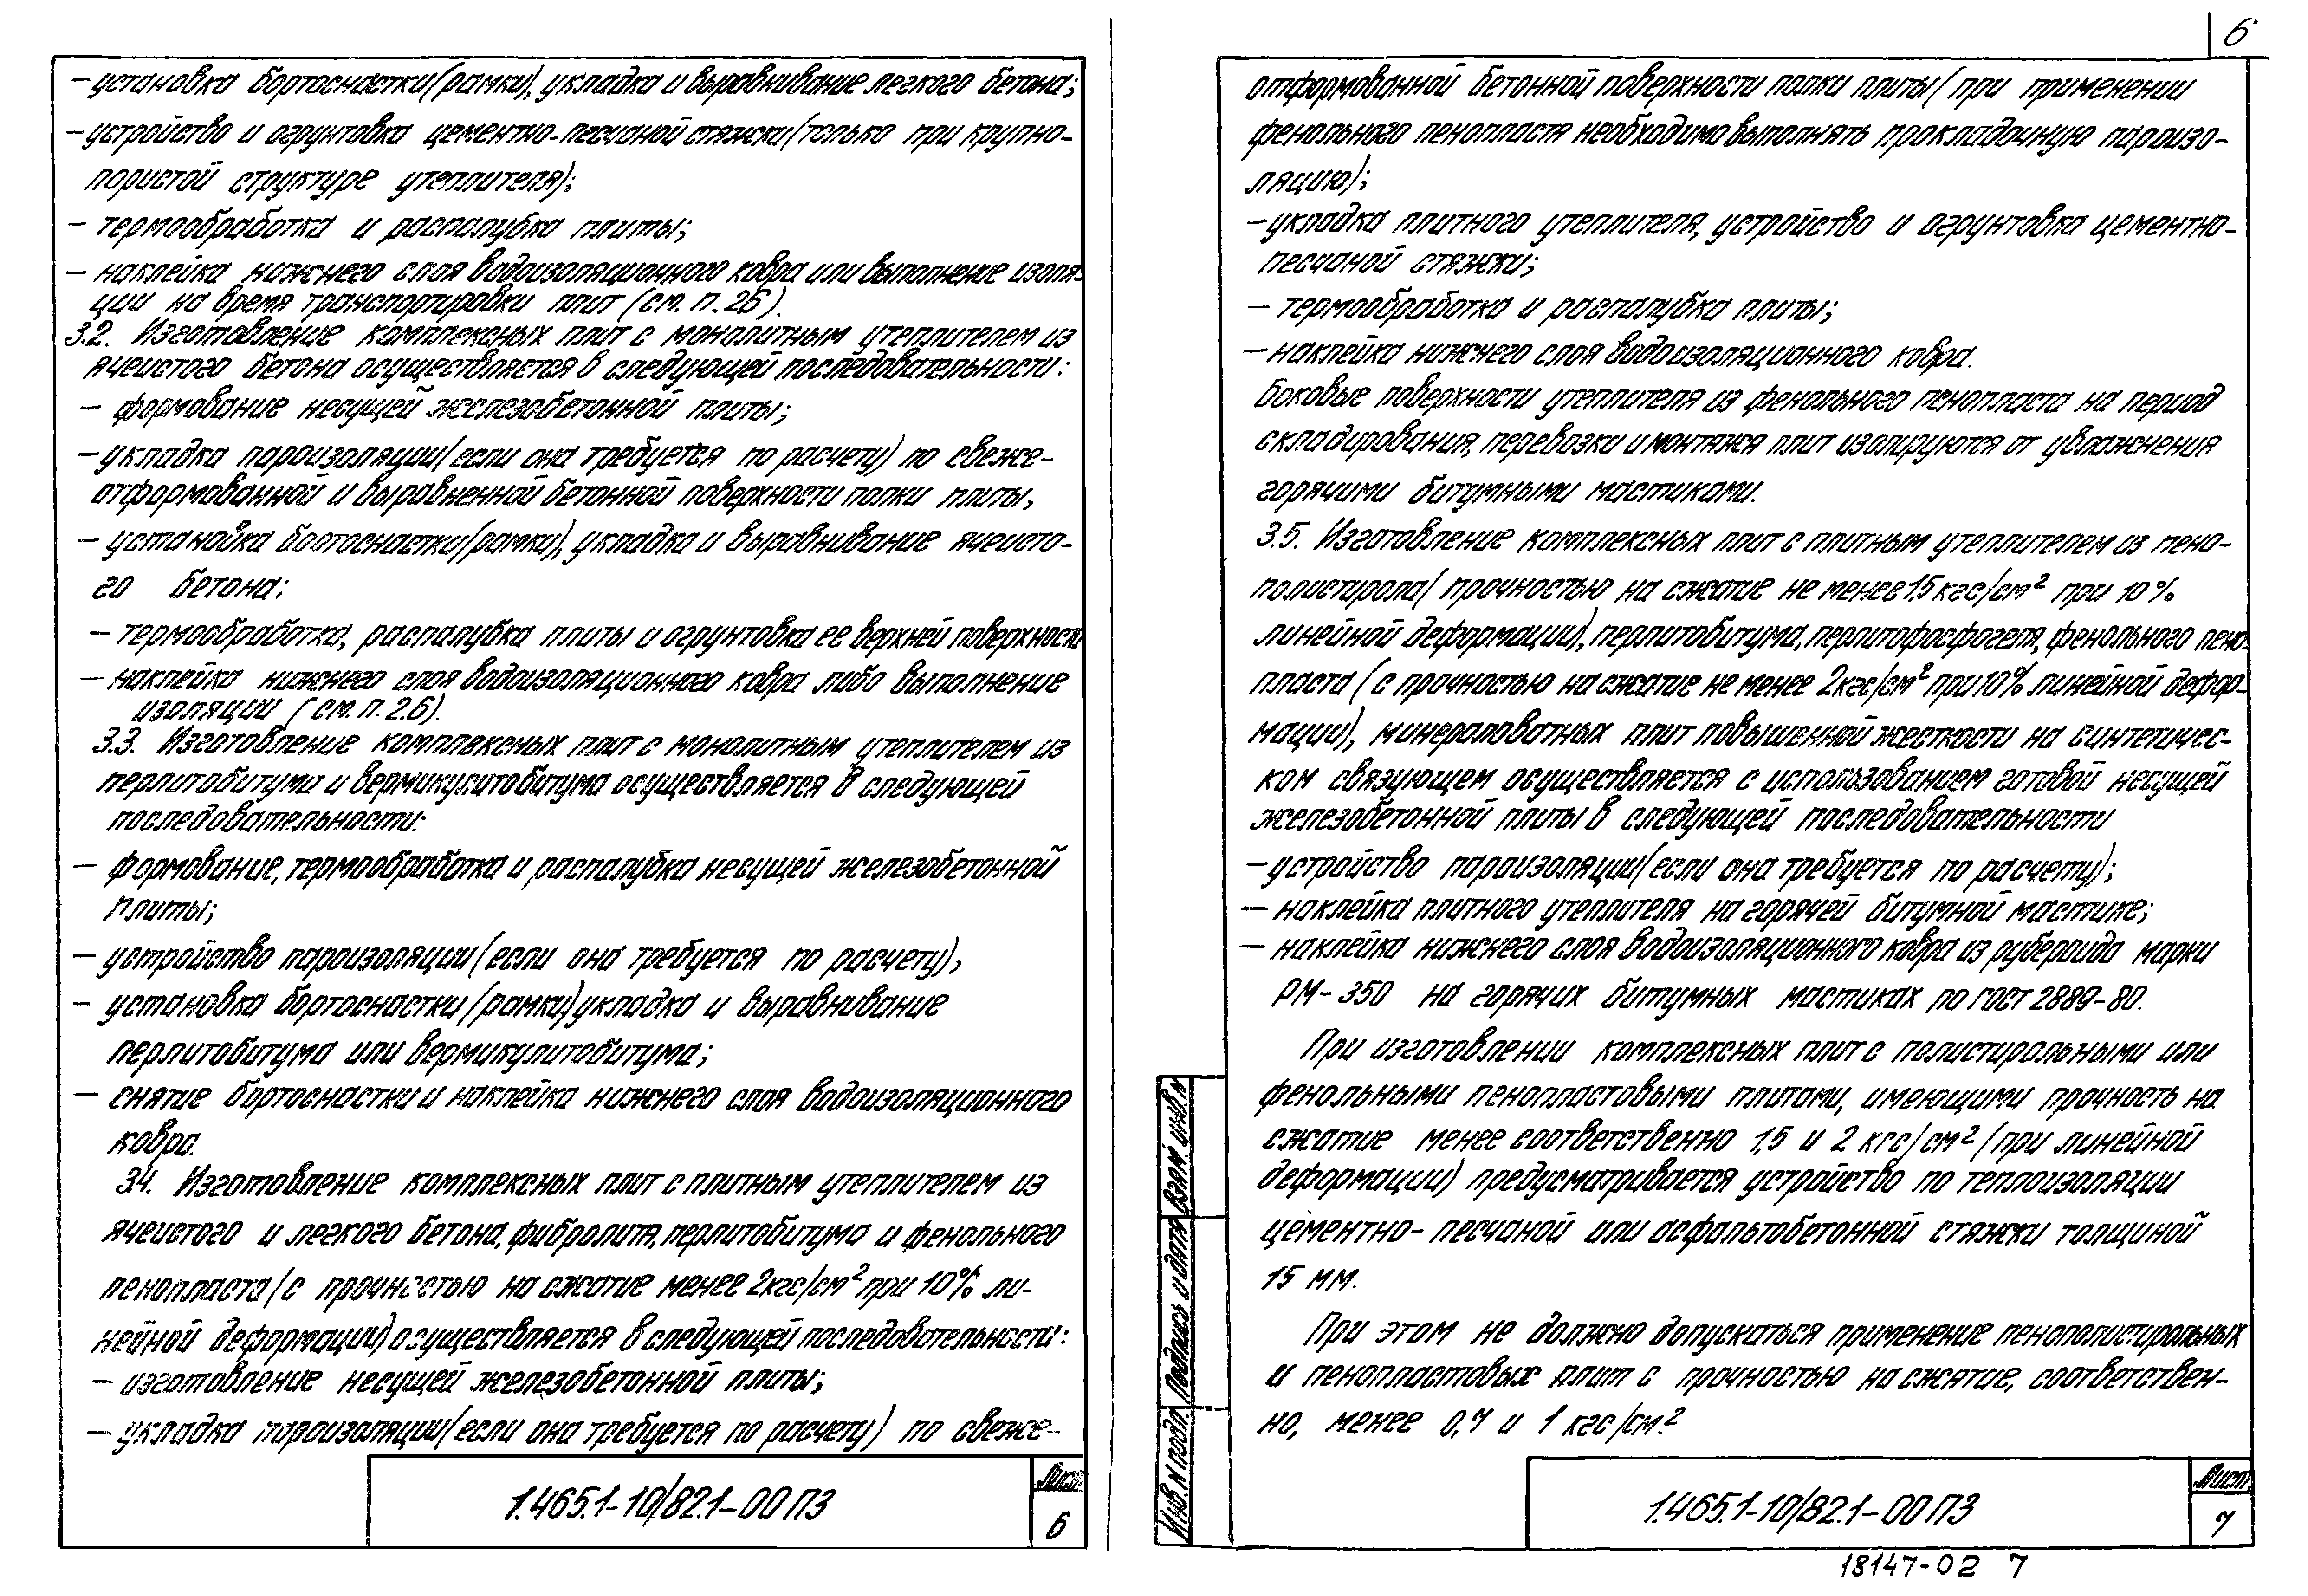 — установка бортоснастки (рамки), укладка и выравнивание легкого бетона;
— устройство и огрунтовка цементно-песчаной стяжки (только при крупно-
пористой структуре утеплителя);
— термообработка и распалубка плиты;
— наклейка нижнего слоя водоизоляционного ковра или выполнение изоля-
ции на время транспортировки плит (см. п. 26).
3.2. Изготовление комплексных плит с монолитным утеплителем из
ячеистого бетона осуществляется в следующей последовательности:
— формование несущей железобетонной плиты;
— укладка пароизоляции (если она требуется по расчету) по свеже-
отформованной и выравненной бетонной поверхности полки плиты,
— установка бортоснастки (рамки), укладка и выравнивание ячеисто-
го бетона;
— термообработка, распалубка плиты и огрунтовка ее верхней поверхности
— наклейка нижнего слоя водоизоляционного ковра либо выполнение
изоляции (см. п. 2.6).
3.3. Изготовление комплексных плит с монолитным утеплителем из
перлитобитума и вермикулитобитума осуществляется в следующей
последовательности:
— формование, термообработка и распалубка несущей железобетонной
плиты;
— устройство пароизоляции (если она требуется по расчету),
— установка бортоснастки (рамки) укладка и выравнивание
перлитобитума или вермикулитобитума;
— снятие бортоснастки и наклейка нижнего слоя водоизоляционного
ковра.
3.4. Изготовление комплексных плит с плитным утеплителем из
ячеистого и легкого бетона, фибролита, перлитобитума и фенольного
пенопласта (с прочностью на сжатие менее 2кгс/см² при 10% ли-
нейной деформации) осуществляется в следующей последовательности:
— изготовление несущей железобетонной плиты;
— укладка пароизоляции (если она требуется по расчету) по свеже-
1.465.1-10/82.1-00 ПЗ
Лист
6
6
отформованной бетонной поверхности полки плиты (при применении
фенольного пенопласта необходимо выполнять прокладочную пароизо-
ляцию);
— укладка плитного утеплителя, устройство и огрунтовка цементно-
песчаной стяжки;
— термообработка и распалубка плиты;
— наклейка нижнего слоя водоизоляционного ковра.
Боковые поверхности утеплителя из фенольного пенопласта на период
складирования, перевозки и монтажа плит изолируются от увлажнения
горячими битумными мастиками.
3.5. Изготовление комплексных плит с плитным утеплителем из пено-
полистирола (прочностью на сжатие не менее 1.5 кгс/см² при 10%
линейной деформации), перлитобитума, перлитофосфогеля, фенольного пено-
пласта (с прочностью на сжатие не менее 2кгс/см² при 10% линейной дефор-
мации), минераловатных плит повышенной жесткости на синтетичес-
ком связующем осуществляется с использованием готовой несущей
железобетонной плиты в следующей последовательности
— устройство пароизоляции (если она требуется по расчету);
— наклейка плитного утеплителя на горячей битумной мастике;
— наклейка нижнего слоя водоизоляционного ковра из рубероида марки
РМ-350 на горячих битумных мастиках по ГОСТ 2889-80.
При изготовлении комплексных плит с полистирольными или
фенольными пенопластовыми плитами, имеющими прочность на
сжатие менее соответственно 1,5 и 2 кгс/см² (при линейной
деформации) предусматривается устройство по теплоизоляции
цементно-песчаной или асфальтобетонной стяжки толщиной
15 мм.
При этом не должно допускаться применение пенополистирольных
и пенопластовых плит с прочностью на сжатие, соответствен-
но, менее 0,7 и 1 кгс/см².
Инв. N подл. Подпись и дата Взам. инв. N
1.465.1-10/82.1-00 ПЗ
Лист
7
18147-02 7